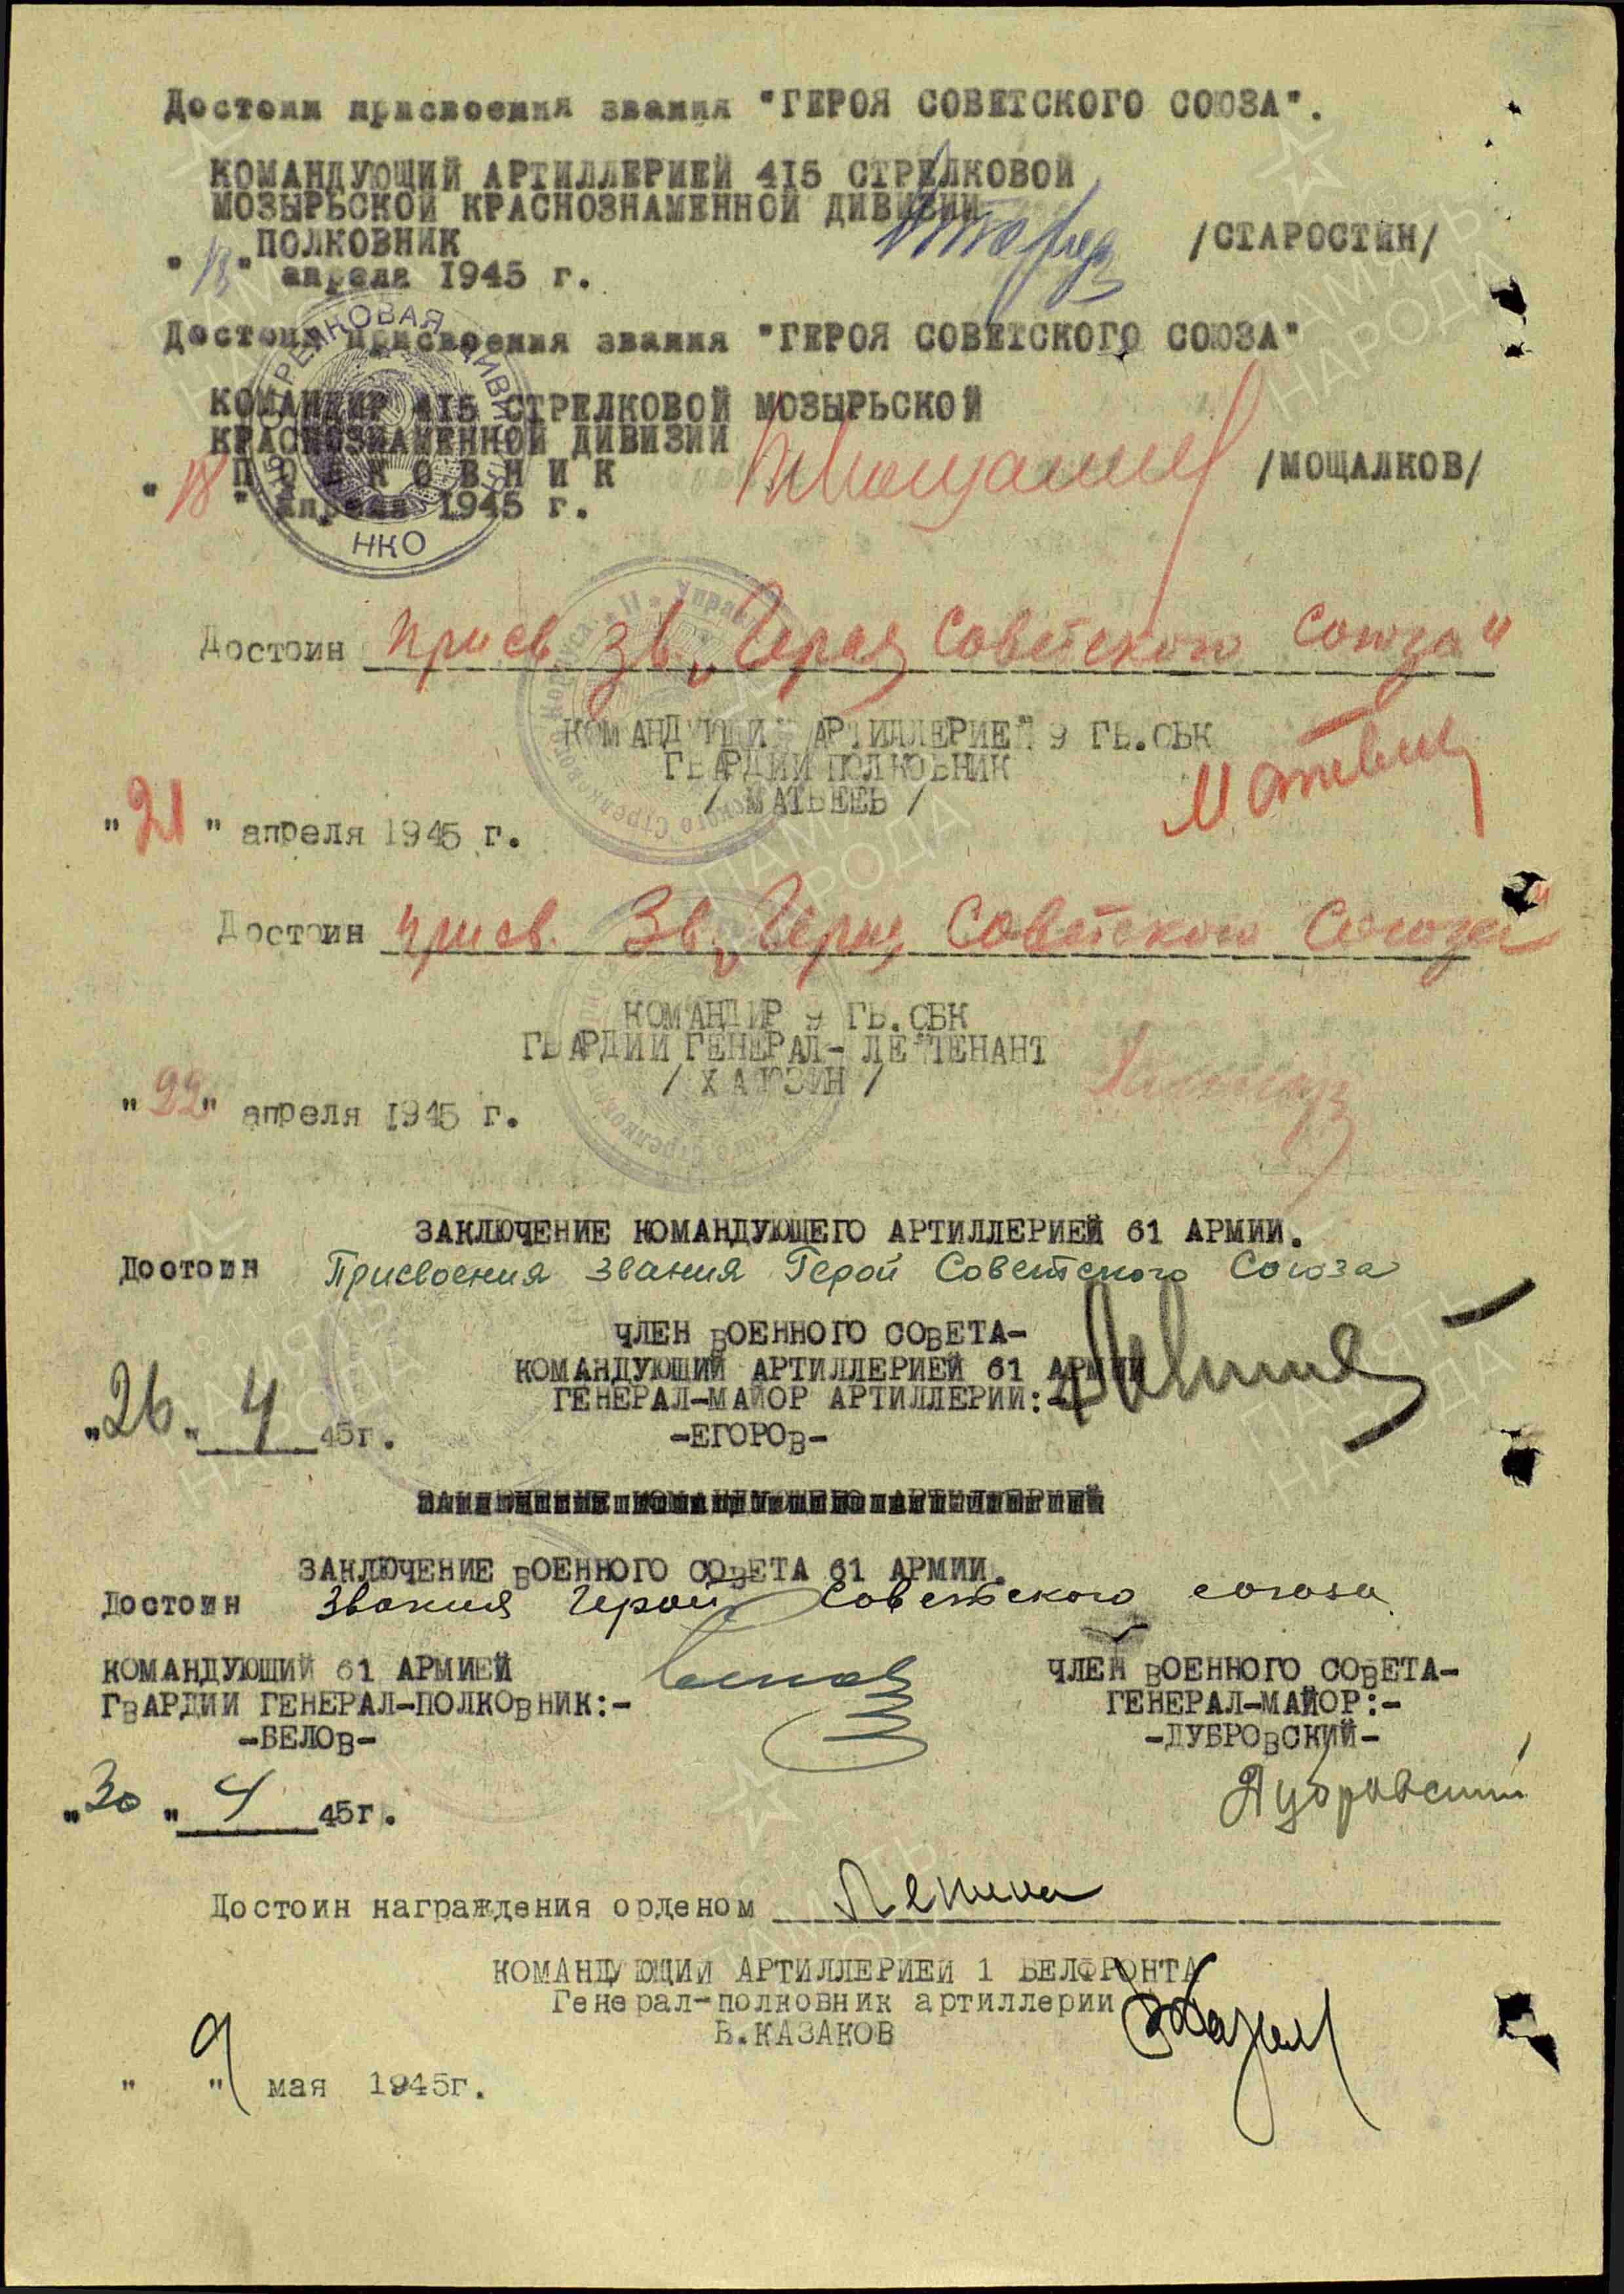 Достоин присвоения звания "ГЕРОЯ СОВЕТСКОГО СОЮЗА".
КОМАНДУЮЩИЙ АРТИЛЛЕРИЕЙ 415 СТРЕЛКОВОЙ
МОЗЫРЬСКОЙ КРАСНОЗНАМЕННОЙ ДИВИЗИИ
ПОЛКОВНИК /СТАРОСТИН/
" " апреля 1945 г.
Достоин присвоения звания "ГЕРОЯ СОВЕТСКОГО СОЮЗА"
КОМАНДИР 415 СТРЕЛКОВОЙ МОЗЫРЬСКОЙ
КРАСНОЗНАМЕННОЙ ДИВИЗИИ
ПОЛКОВНИК /МОЩАЛКОВ/
"18" апреля 1945 г.
НКО
Достоин присв зв. „Героя Советского Союза"
КОМАНДУЮЩИЙ АРТИЛЛЕРИЕЙ 9 ГВ.СБК
ГВАРДИИ ПОЛКОВНИК
/ МАТВЕЕВ /
"21" апреля 1945 г.
Достоин присв. Зв. „Героя Советского Союза"
КОМАНДИР 9 ГВ.СБК
ГВАРДИИ ГЕНЕРАЛ-ЛЕЙТЕНАНТ
/ ХАЛЮЗИН /
"22" апреля 1945 г.
ЗАКЛЮЧЕНИЕ КОМАНДУЮЩЕГО АРТИЛЛЕРИЕЙ 61 АРМИИ.
Достоин Присвоения звания Герой Советского Союза
ЧЛЕН ВОЕННОГО СОВЕТА-
КОМАНДУЮЩИЙ АРТИЛЛЕРИЕЙ 61 АРМИИ
ГЕНЕРАЛ-МАЙОР АРТИЛЛЕРИИ:-
-ЕГОРОВ-
"26" 4 45г.
ЗАКЛЮЧЕНИЕ ВОЕННОГО СОВЕТА 61 АРМИИ.
Достоин звания Герой Советского союза
КОМАНДУЮЩИЙ 61 АРМИЕЙ
ГВАРДИИ ГЕНЕРАЛ-ПОЛКОВНИК:-
-БЕЛОВ-
ЧЛЕН ВОЕННОГО СОВЕТА-
ГЕНЕРАЛ-МАЙОР:-
-ДУБРОВСКИЙ-
Дубровский
"30" 4 45г.
Достоин награждения орденом Ленина
КОМАНДУЮЩИЙ АРТИЛЛЕРИЕЙ 1 БЕЛФРОНТА
Генерал-полковник артиллерии
В.КАЗАКОВ
" 9 " мая 1945г.